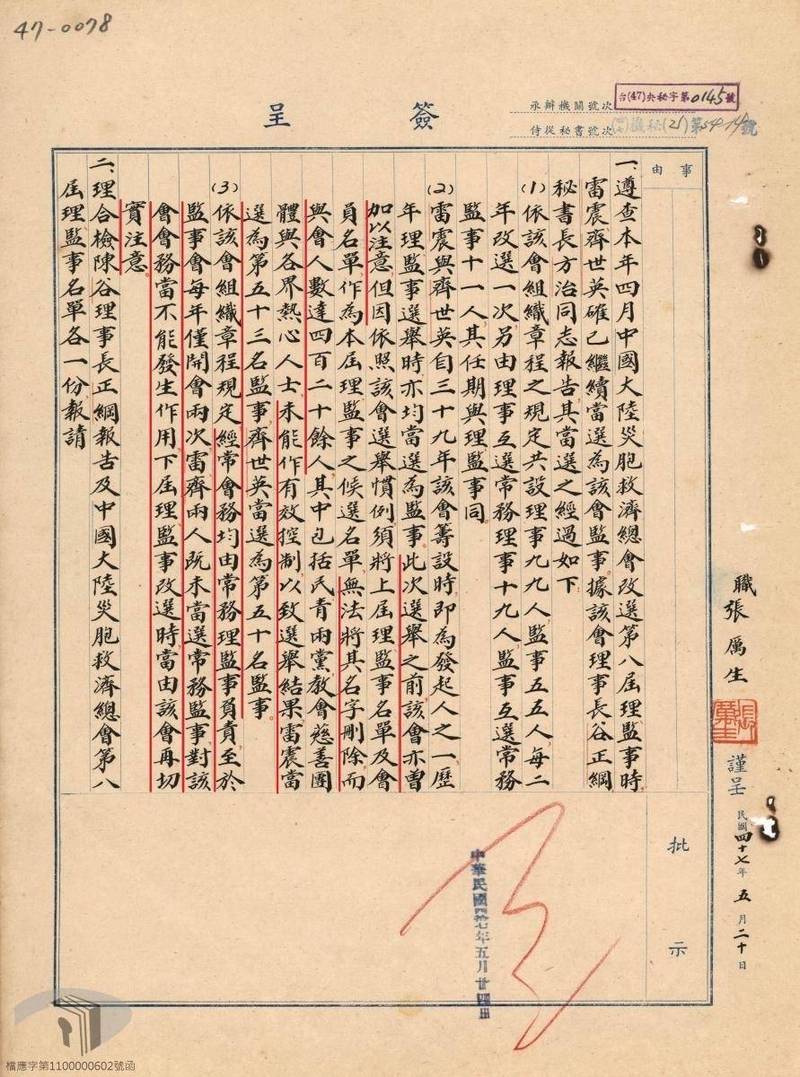 47-0078
簽呈
承辦機關號次
台(47)央秘字第0145號
侍從秘書號次
事由
一、遵查本年四月中國大陸災胞救濟總會改選第八屆理監事時
雷震齊世英確已繼續當選為該會監事。據該會理事長谷正綱
秘書長方治同志報告，其當選之經過如下
(1)依該會組織章程之規定共設理事九九人監事五五人，每二
年改選一次另由理事互選常務理事十九人監事互選常務
監事十一人其任期與理監事同。
(2)雷震與齊世英自三十九年該會籌設時，即為發起人之一歷
年理監事選舉時亦均當選為監事。此次選舉之前，該會亦曾
加以注意但因依照該會選舉慣例須將上屆理監事名單及會
員名單作為本屆理監事之候選名單無法將其名字刪除而
與會人數達四百二十餘人，其中包括民青兩黨教會慈善團
體與各界熱心人士，未能作有效控制，以致選舉結果雷震當
選為第五十三名監事，齊世英當選為第五十名監事。
(3)依該會組織章程規定經常會務均由常務理監事負責，至於
監事會每年僅開會兩次雷齊兩人既未當選常務監事對該
會會務當不能發生作用下屆理監事改選時，當由該會再切
實注意。
二、理合檢陳谷理事長正綱報告及中國大陸災胞救濟總會第八
屆理監事名單各一份報請
職張厲生
張厲生
謹呈
民國四十七年五月二十日
批示
中華民國四拾七年五月廿四日
檔應字第1100000602號函